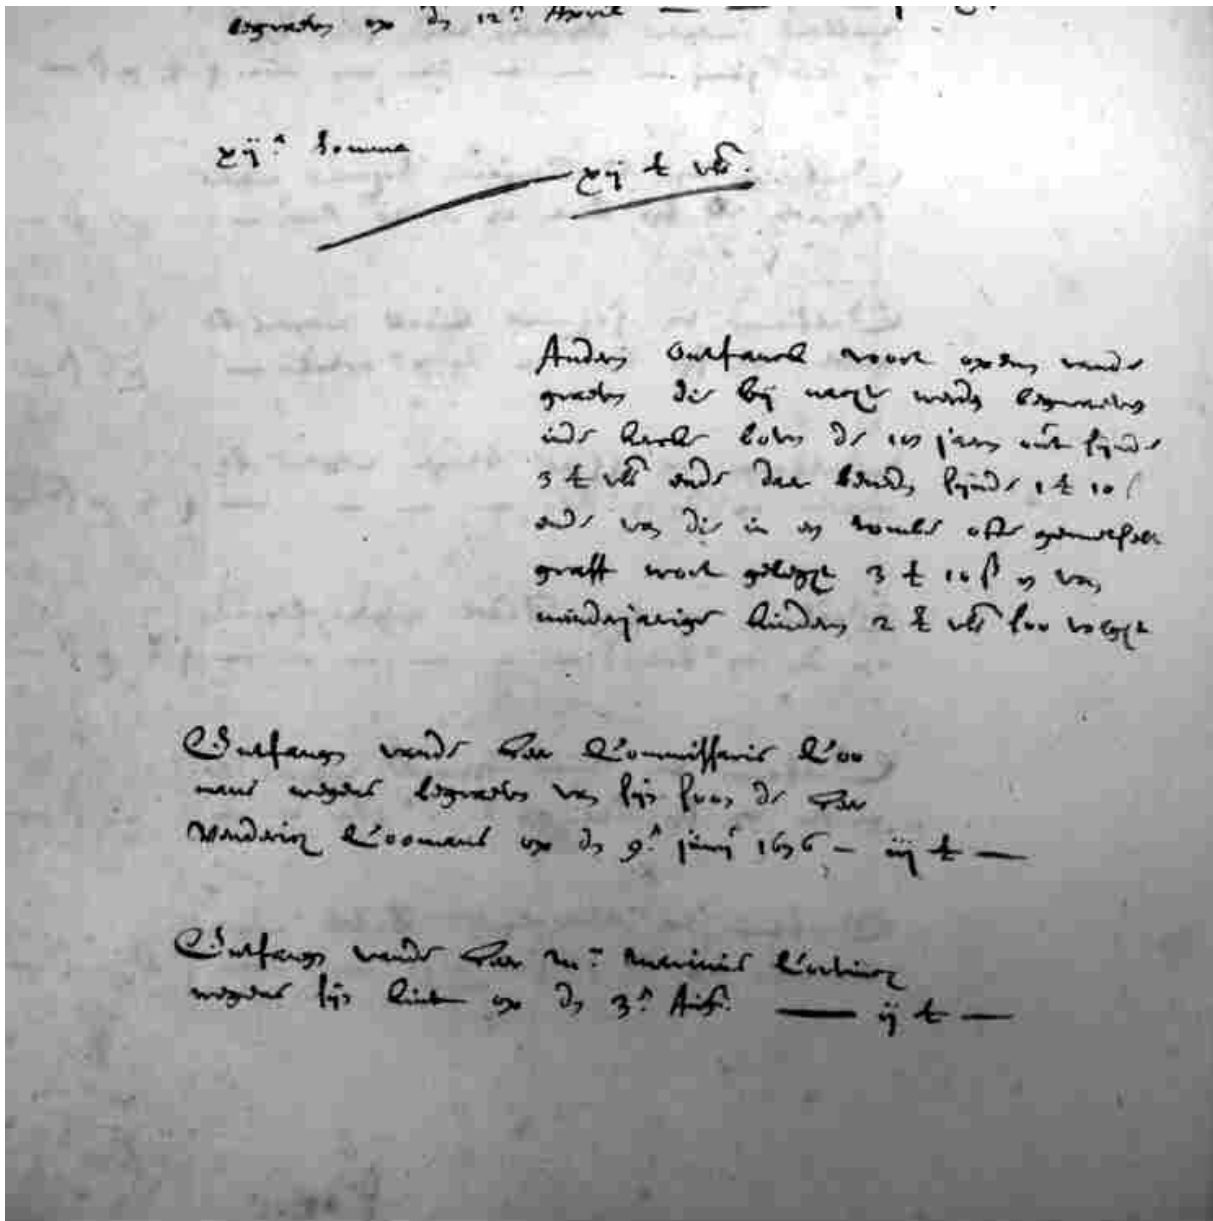 begraven op den 12.en April
xij.e Somme
xij £ vls.
Anderen Ontfanck voort openen vande
graven die bij nacht werden begraven
inde kercke boven de 10 jaren out sijnde
3 £ vls ende daer beneden sijnde 1 £ 10 s
ende van die in een tombe ofte gemetselt
graff wort geleght 3 £ 10 s en van
minderjarige kinderen 2 £ vls soo volght
Ontfangen vande Heer Commissaris Coo
mans wegens begraven van sijn soon de Heer
Coomans op den 9.en junij 1656 – iij £ —
Ontfangen vande Heer Mr. Marinis
wegens sijn kint op den 3.en — ij £ —